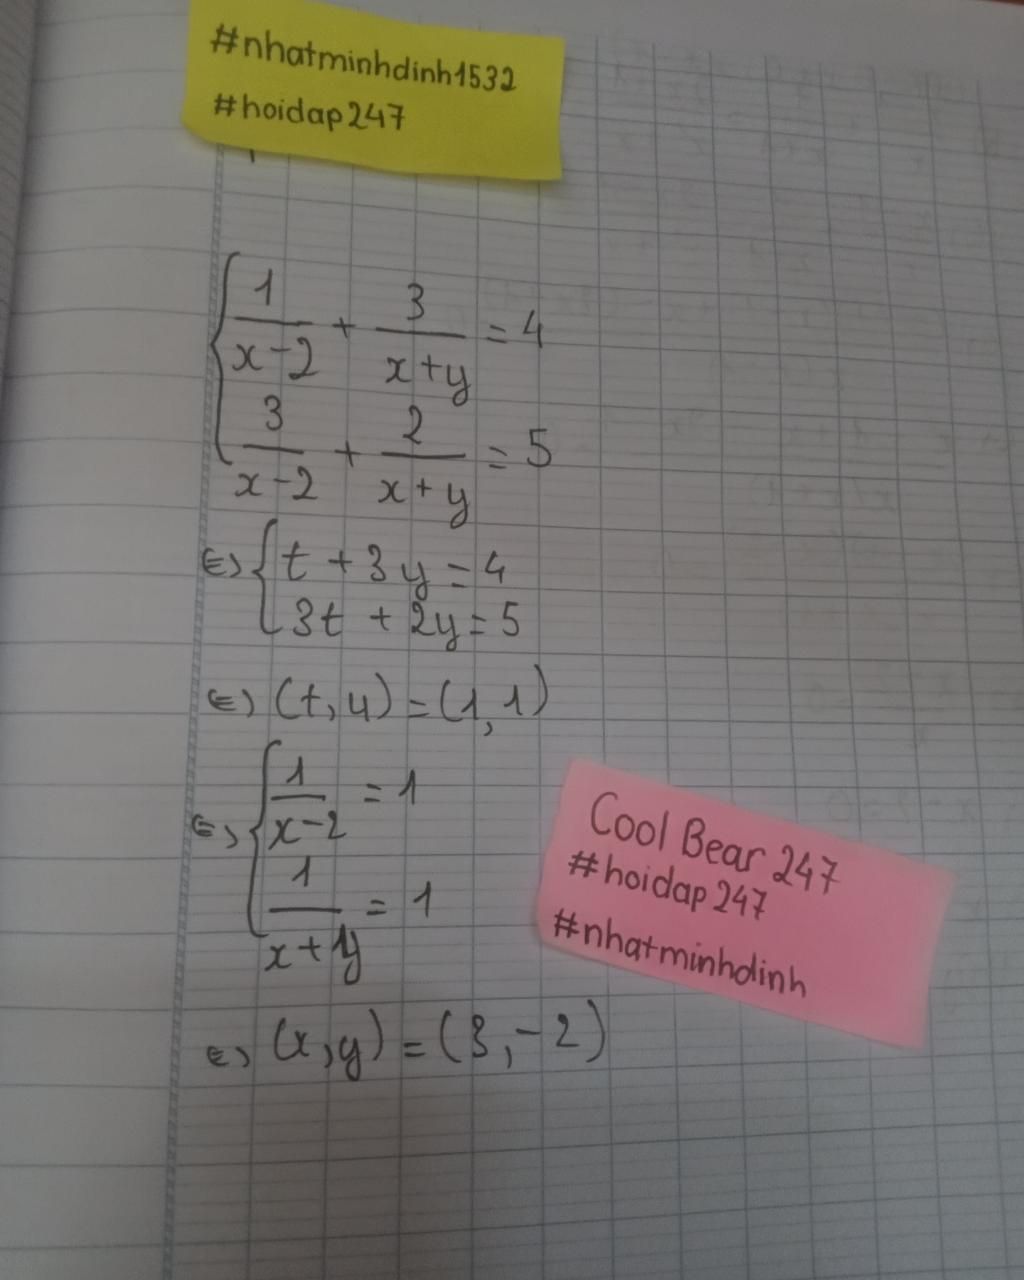 #nhatminhdinh1532
#hoidap247
1/(x-2) + 3/(x+y) = 4
3/(x-2) + 2/(x+y) = 5
⇔ { t + 3y = 4
3t + 2y = 5
⇔ (t, u) = (1, 1)
⇔ { 1/(x-2) = 1
1/(x+y) = 1
⇔ (x, y) = (3, -2)
Cool Bear 247
#hoidap247
#nhatminhdinh